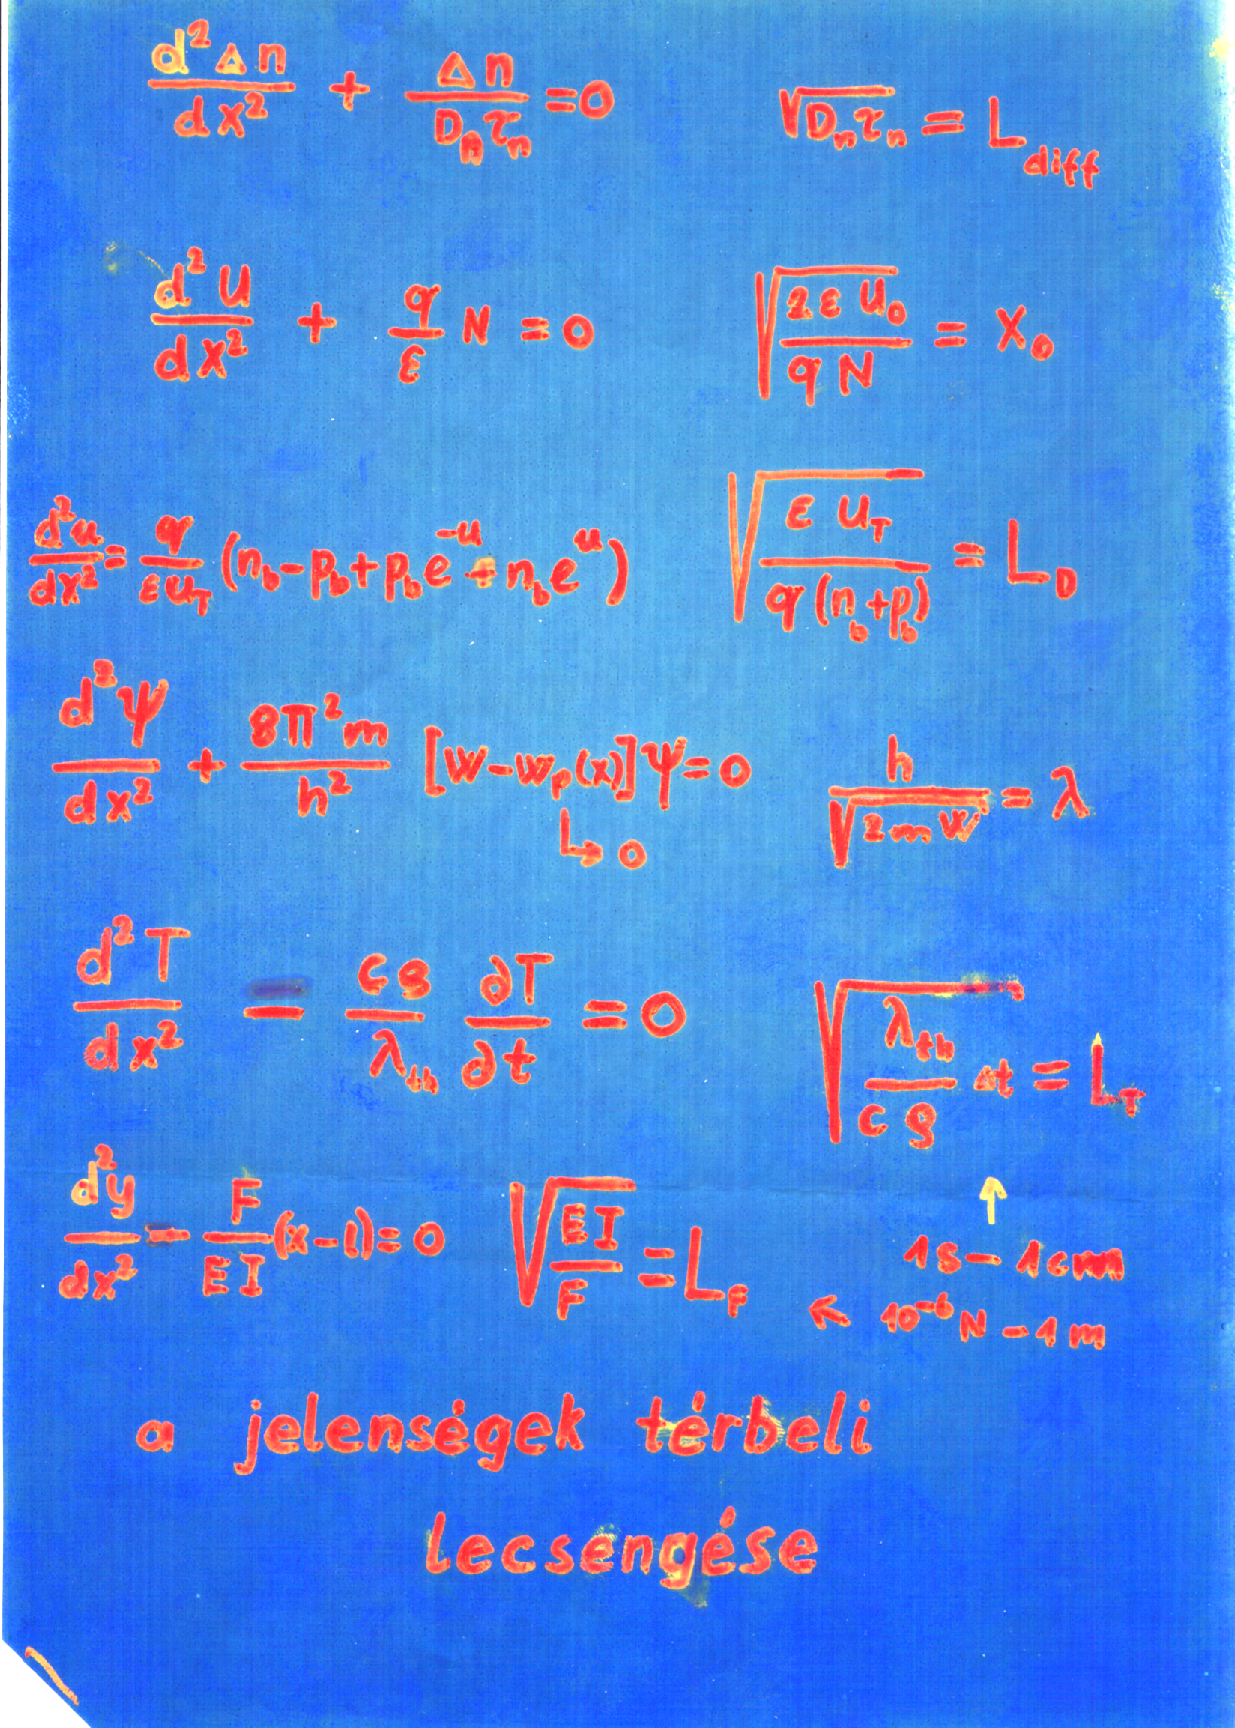 d²Δn/dx² + Δn/(Dₙτₙ) = 0    √(Dₙτₙ) = L_diff
d²U/dx² + (q/ε) N = 0    √(2εU₀/(qN)) = X₀
d²u/dx² = q/(εU_T) (n_b − p_b + p_b e^(−u) + n_b e^u)    √(εU_T/(q(n_b+p_b))) = L_D
d²ψ/dx² + (8π²m/h²) [W − W_p(x)] ψ = 0    h/√(2mW) = λ
↳ 0
d²T/dx² = (cϱ/λ_th) ∂T/∂t = 0    √((λ_th/(cϱ)) Δt) = L_T
d²y/dx² − (F/(EI)) (x − l) = 0    √(EI/F) = L_F
↑
1s − 1cm
← 10⁻⁶ N − 1m
a jelenségek térbeli
lecsengése